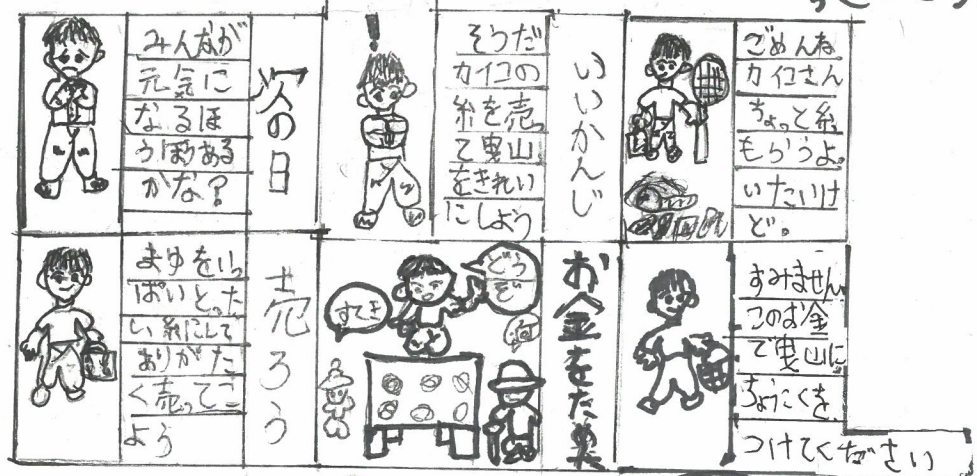 みんなが
元気に
なるほ
うほうある
かな？
次の日
！
そうだ
カイコの
糸を売っ
て曳山
をきれい
にしよう
いいかんじ
ごめんね
カイコさん
ちょっと糸
もらうよ。
いたいけ
ど。
まゆをいっ
ぱいとった
い糸にして
ありがた
く売ってこ
よう
売ろう
すてき
どう
ぞ
何
お金をため
すみません。
このお金
で曳山に
ちょうこくを
つけてください